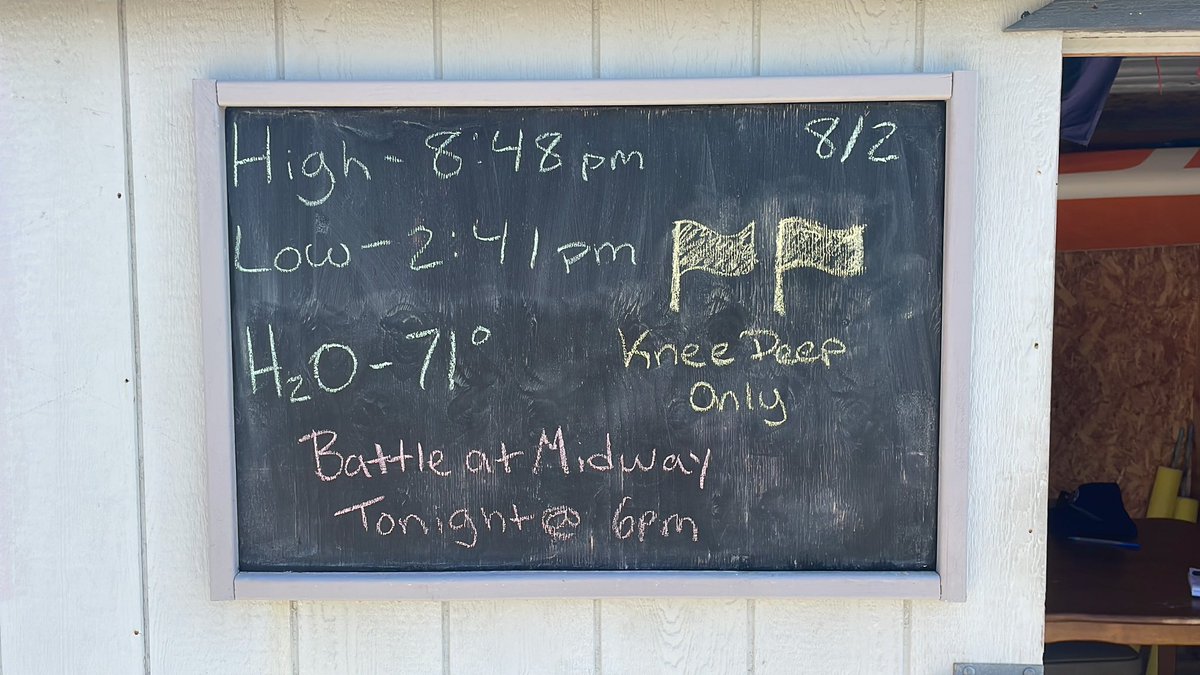 High - 8:48 pm
8/2
Low - 2:41 pm
H₂O - 71°
Knee Deep
Only
Battle at Midway
Tonight @ 6pm